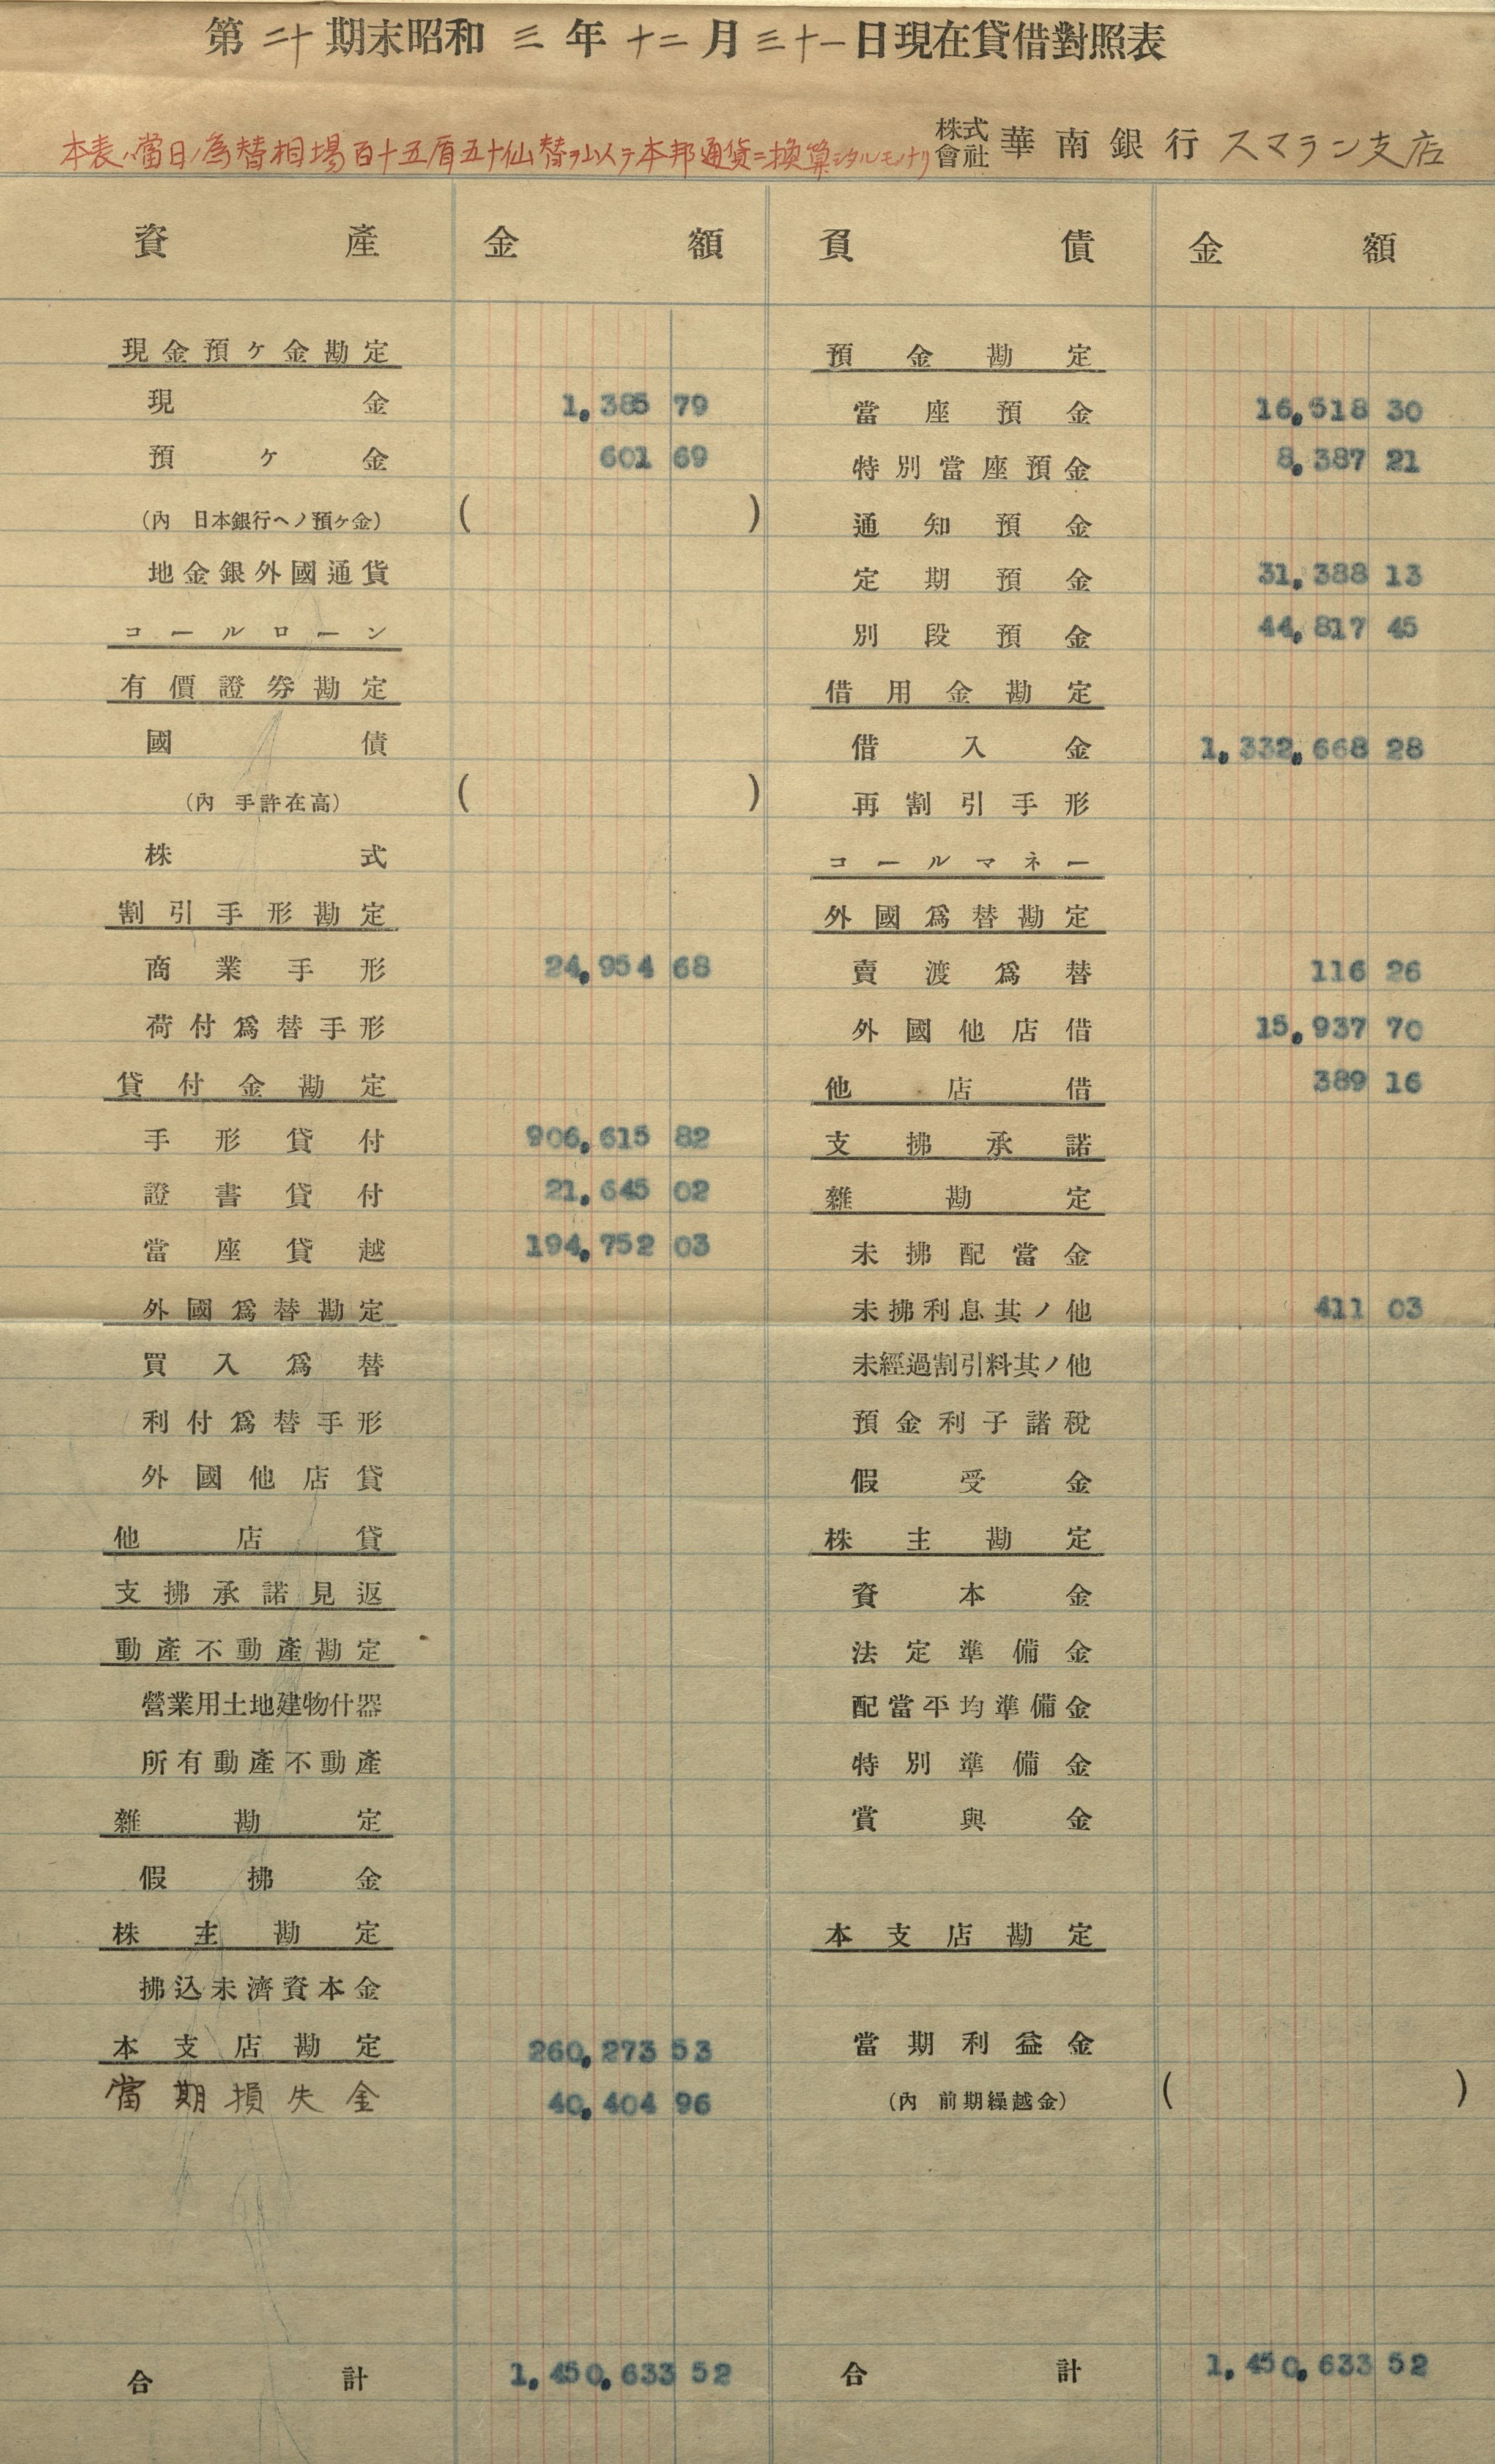 第二十期末昭和三年十二月三十一日現在貸借對照表
株式會社 華南銀行 スマラン支店
本表ハ當日ノ為替相場百十五盾五十仙替ヲ以テ本邦通貨ニ換算シタルモノナリ
資產 金額 負債 金額
現金預ヶ金勘定
現金 1,385 79
預ヶ金 601 69
(內 日本銀行ヘノ預ヶ金) ( )
地金銀外國通貨
コールローン
有價證券勘定
國債
(內 手許在高) ( )
株式
割引手形勘定
商業手形 24,954 68
荷付爲替手形
貸付金勘定
手形貸付 906,615 82
證書貸付 21,645 02
當座貸越 194,752 03
外國爲替勘定
買入爲替
利付爲替手形
外國他店貸
他店貸
支拂承諾見返
動產不動產勘定
營業用土地建物什器
所有動產不動產
雜勘定
假拂金
株主勘定
拂込未濟資本金
本支店勘定 260,273 53
當期損失金 40,404 96
合計 1,450,633 52
預金勘定
當座預金 16,518 30
特別當座預金 8,387 21
通知預金
定期預金 31,388 13
別段預金 44,817 45
借用金勘定
借入金 1,332,668 28
再割引手形
コールマネー
外國爲替勘定
賣渡爲替 116 26
外國他店借 15,937 70
他店借 389 16
支拂承諾
雜勘定
未拂配當金
未拂利息其ノ他 411 03
未經過割引料其ノ他
預金利子諸稅
假受金
株主勘定
資本金
法定準備金
配當平均準備金
特別準備金
賞與金
本支店勘定
當期利益金
(內 前期繰越金) ( )
合計 1,450,633 52